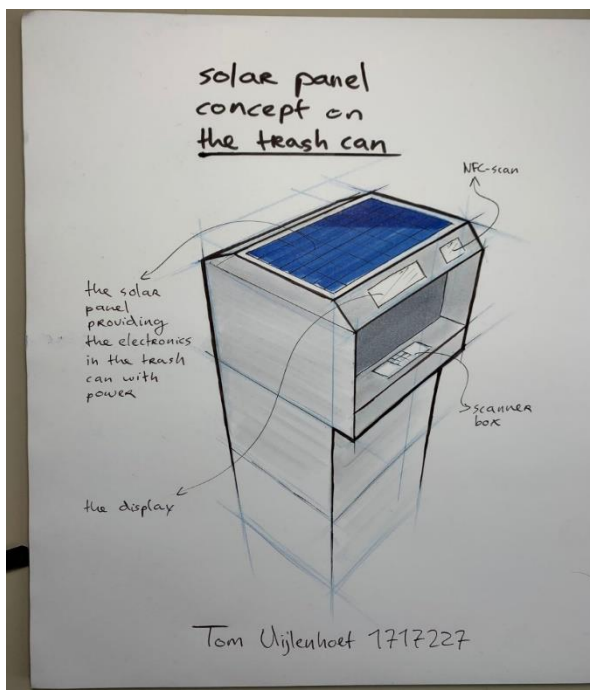 solar panel
concept on
the trash can
NFC-scan
the solar
panel
providing
the electronics
in the trash
can with
power
scanner
box
the display
Tom Uijlenhoet 1717227